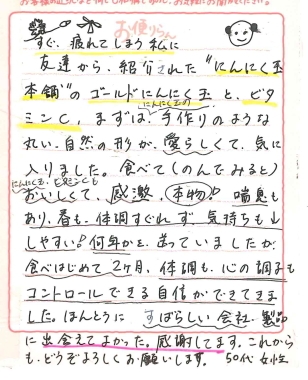 お便りらん
すぐ、疲れてしまう私に
友達から、紹介された"にんにく玉
本舗"のゴールドにんにく玉と、ビタ
ミンC、まずは、手作りのような
にんにく玉の
丸い、自然の形が、愛らしくて、気に
入りました。食べて(のんでみると)
にんにく玉、ビタミンCも
おいしくて、感激、本物!! 喘息も
あり、春も、体調すぐれず、気持ちも↓
しやすい!何年かと、迷っていましたが、
食べはじめて2ヶ月、体調も、心の調子も
コントロールできる自信ができてきま
した。ほんとうに すばらしい会社、製品
に出会えてよかった。感謝してます。これから
も、どうぞよろしくお願いします。 50代女性